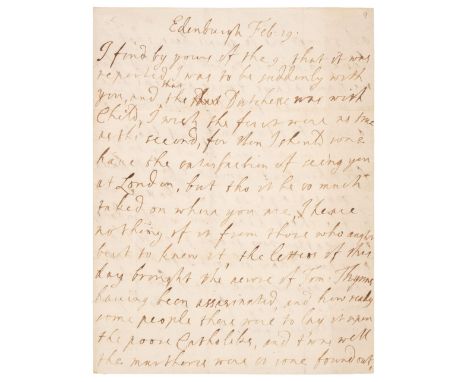 Edenburgh Feb: 19:
I find by yours of the 9, that it was
reported I was to be suddenly with
you, and that the Dutchesse was with
Child, I wish the first were as true
as the second, for then I should soone
have the satisfaction of seeing you
at London, but tho it be so much
talked on where you are, I heare
nothing of it from those who ought
best to know it, the letters of this
day brought the newse of Tom: Thynns
having been assasinated, and how ready
some people there were to lay it upon
the poore Catholiks, and twas well
the murthorers were so sone found out,